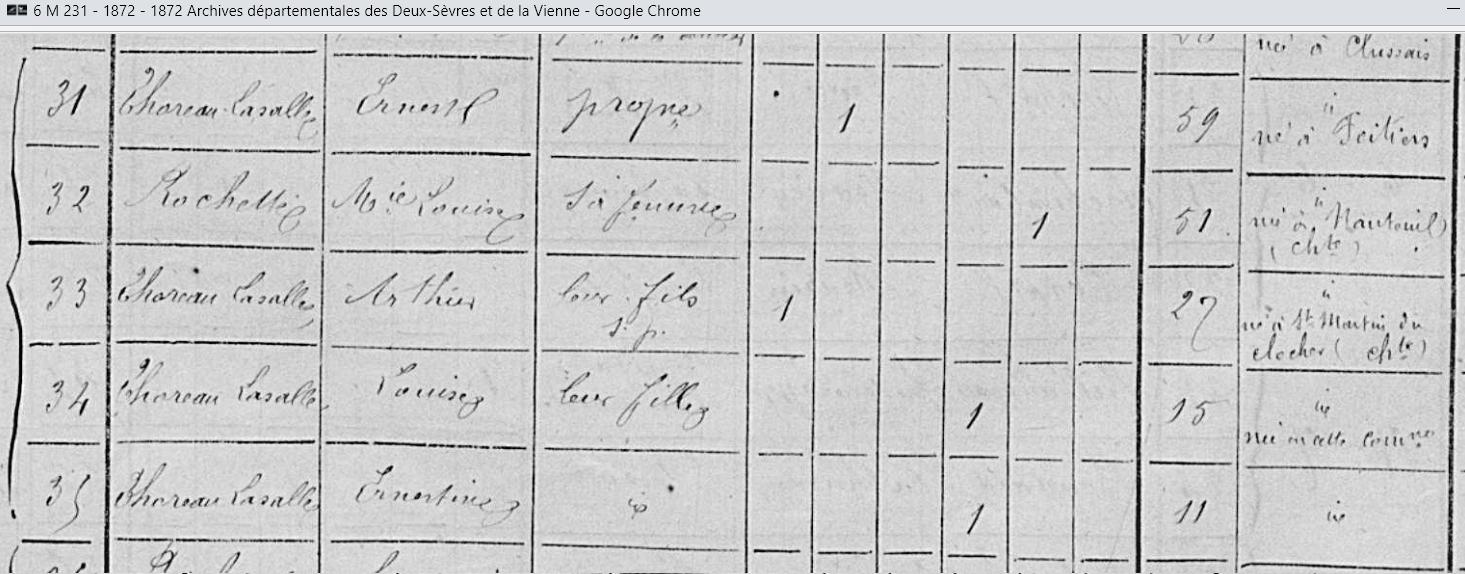 6 M 231 - 1872 - 1872 Archives départementales des Deux-Sèvres et de la Vienne - Google Chrome
né à Clussais
31 Thoreau-Lasalle Ernest propre 1 59 "
né à Poitiers
32 Rochette Mie Louise sa femme 1 51 "
né à Nanteuil
(chte)
33 Thoreau Lasalle Arthur leur fils 1 27 "
s. p.
né à St Martin du
clocher (chte)
34 Thoreau Lasalle Louise leur fille 1 15 id
née en cette comne
35 Thoreau Lasalle Ernestine id 1 11 id